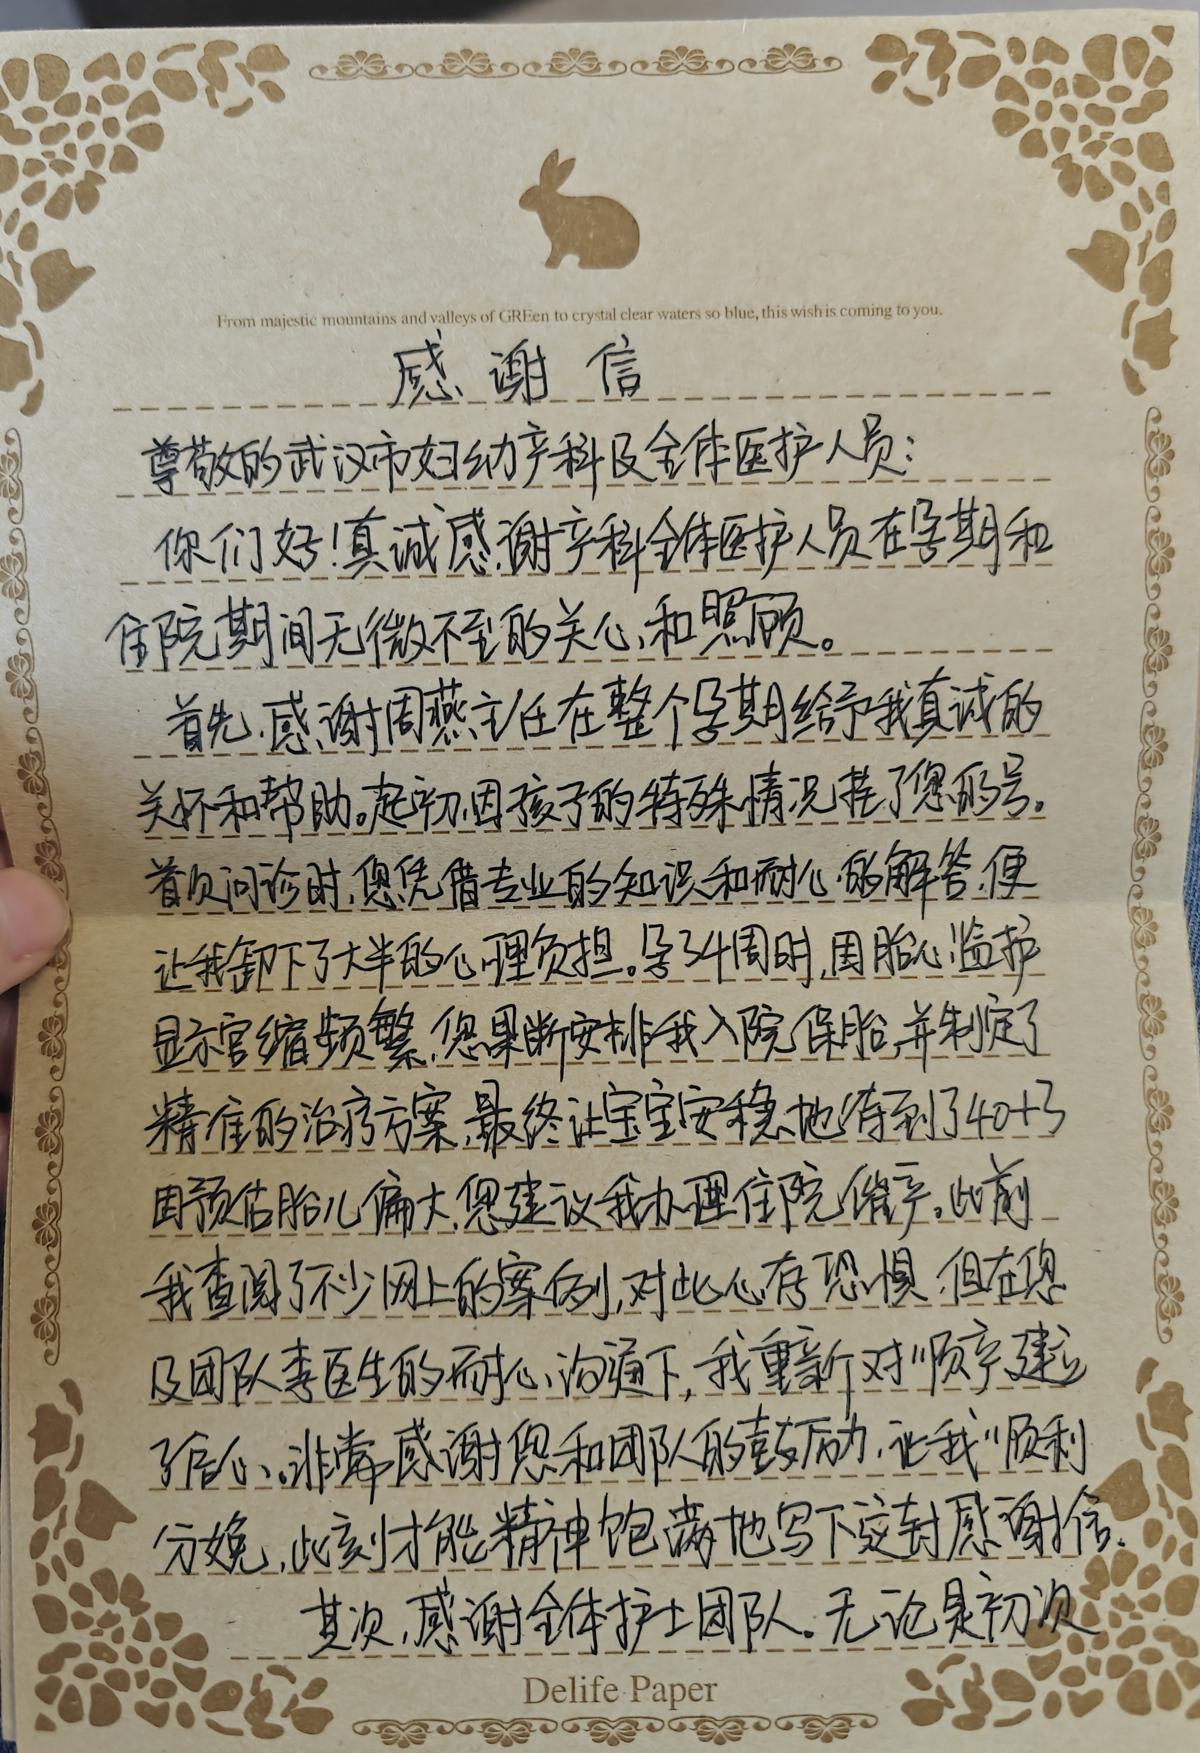 From majestic mountains and valleys of GREen to crystal clear waters so blue, this wish is coming to you.
感谢信
尊敬的武汉市妇幼产科及全体医护人员：
你们好！真诚感谢产科全体医护人员在孕期和
住院期间无微不至的关心和照顾。
首先，感谢周燕主任在整个孕期给予我真诚的
关怀和帮助。起初，因孩子的特殊情况挂了您的号。
首次问诊时，您凭借专业的知识和耐心的解答，便
让我卸下了大半的心理负担。孕34周时，因胎心监护
显示宫缩频繁，您果断安排我入院保胎，并制定了
精准的治疗方案，最终让宝宝安稳地待到了40+3
因预估胎儿偏大，您建议我办理住院催产。此前
我查阅了不少网上的案例，对此心存恐惧，但在您
及团队李医生的耐心沟通下，我重新对顺产建立
了信心。非常感谢您和团队的鼓励，让我顺利
分娩，此刻才能精神饱满地写下这封感谢信。
其次，感谢全体护士团队。无论是初次
Delife Paper